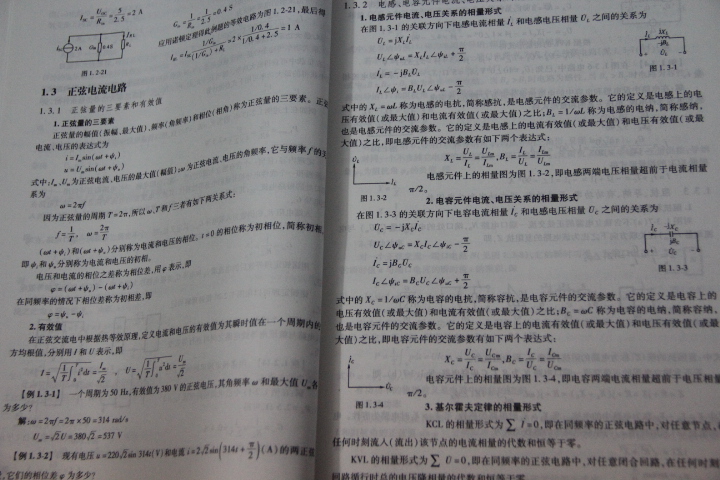 应用诺顿定理求得此例题的等效电路为图 1.2-21,最后得
图 1.2-21
1.3 正弦电流电路
1.3.1 正弦量的三要素和有效值
1. 正弦量的三要素
正弦量的幅值(振幅、最大值)、频率(角频率)和相位(相角)称为正弦量的三要素。正弦
电流、电压的表达式为
i = Iₘsin(ωt + ψᵢ)
u = Uₘsin(ωt + ψᵤ)
式中:Iₘ、Uₘ为正弦电流、电压的最大值(幅值);ω为正弦电流、电压的角频率,它与频率 f 的关
系为
ω = 2πf
因为正弦量的周期 T = 2π,所以 ω、T 和 f 三者有如下两关系式:
f = 1/T, ω = 2π/T
(ωt + ψᵢ)和(ωt + ψᵤ)分别称为电流和电压的相位。t = 0 的相位称为初相位,简称初相,
即 ψᵢ和 ψᵤ分别称为电流和电压的初相。
电压和电流的相位之差称为相位差,用 φ 表示,即
φ = (ωt + ψᵤ) - (ωt + ψᵢ)
在同频率的情况下相位差称为初相差,即
φ = ψᵤ - ψᵢ
2. 有效值
在正弦交流电中根据热等效原理,定义电流和电压的有效值为其瞬时值在一个周期内的
方均根值,分别用 I 和 U 表示,即
【例 1.3-1】 一个周期为 50 Hz,有效值为 380 V 的正弦电压,其角频率 ω 和最大值 Uₘ各
为多少?
解:ω = 2πf = 2π × 50 = 314 rad/s
Uₘ = √2U = 380√2 = 537 V
【例 1.3-2】 现有电压 u = 220√2sin 314t(V)和电流 i = 2√2sin(314t + π/2)(A)的两正弦
它们的相位差 φ 为多少?
1. 电感元件电流、电压关系的相量形式
在图 1.3-1 的关联方向下电感电流相量 İ_L 和电感电压相量 U̇_L 之间的关系为
U̇_L = jX_Lİ_L
U_L∠ψᵤL = X_LI_L∠ψᵢL + π/2
İ_L = -jB_LU̇_L
I_L∠ψᵢL = B_LU_L∠ψᵤL - π/2
图 1.3-1
式中的 X_L = ωL 称为电感的电抗,简称感抗,是电感元件的交流参数。它的定义是电感上的电
压有效值(或最大值)和电流有效值(或最大值)之比;B_L = 1/ωL 称为电感的电纳,简称感纳,
也是电感元件的交流参数。它的定义是电感上的电流有效值(或最大值)和电压有效值(或最
大值)之比,即电感元件的交流参数有如下两个表达式:
X_L = U_L/I_L = U_Lm/I_Lm, B_L = I_L/U_L = I_Lm/U_Lm
电感元件上的相量图为图 1.3-2,即电感两端电压相量超前于电流相量
π/2。
图 1.3-2
2. 电容元件电流、电压关系的相量形式
在图 1.3-3 的关联方向下电容电流相量 İ_C 和电感电压相量 U̇_C 之间的关系为
U̇_C = -jX_Cİ_C
U_C∠ψᵤC = X_CI_C∠ψᵢC - π/2
İ_C = jB_CU̇_C
I_C∠ψᵢC = B_CU_C∠ψᵤC + π/2
图 1.3-3
式中的 X_C = 1/ωC 称为电容的电抗,简称容抗,是电容元件的交流参数。它的定义是电容上的
电压有效值(或最大值)和电流有效值(或最大值)之比;B_C = ωC 称为电容的电纳,简称容纳,
也是电容元件的交流参数。它的定义是电容上的电流有效值(或最大值)和电压有效值(或最
大值)之比,即电容元件的交流参数有如下两个表达式:
X_C = U_C/I_C = U_Cm/I_Cm, B_C = I_C/U_C = I_Cm/U_Cm
电容元件上的相量图为图 1.3-4,即电容两端电流相量超前于电压相量
π/2。
图 1.3-4
3. 基尔霍夫定律的相量形式
KCL 的相量形式为 ∑ İ = 0,即在同频率的正弦电路中,对任意节点,在
任何时刻流入(流出)该节点的电流相量的代数和恒等于零。
KVL 的相量形式为 ∑ U̇ = 0,即在同频率的正弦电路中,对任意闭合回路,在任何时刻
回路循行时总的电压降相量的代数和恒等于零